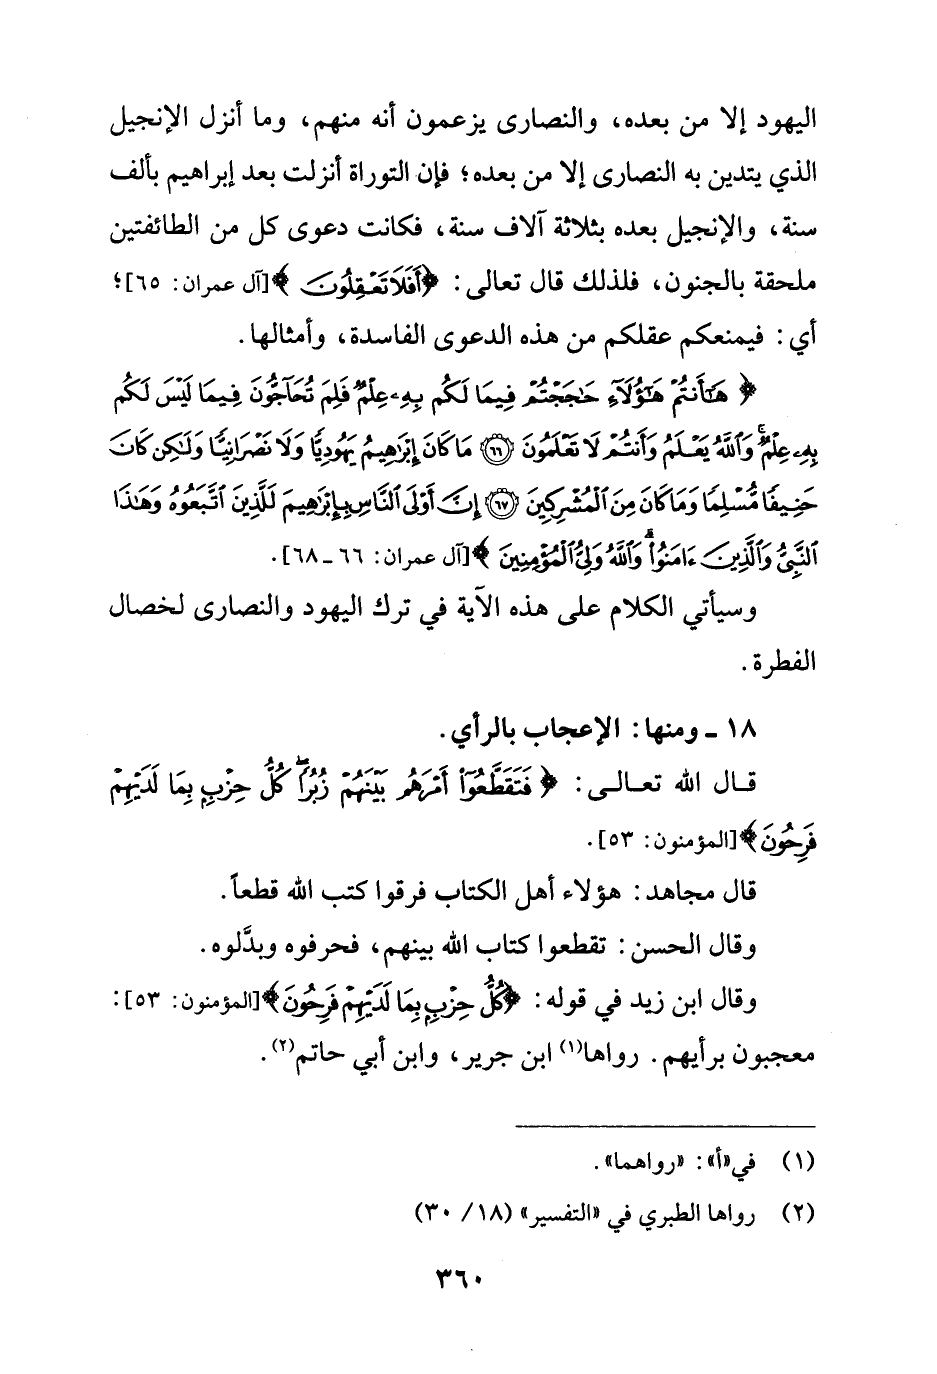 اليهود إلا من بعده، والنصارى يزعمون أنه منهم، وما أنزل الإنجيل
الذي يتدين به النصارى إلا من بعده؛ فإن التوراة أنزلت بعد إبراهيم بألف
سنة، والإنجيل بعده بثلاثة آلاف سنة، فكانت دعوى كل من الطائفتين
ملحقة بالجنون، فلذلك قال تعالى: ﴿أَفَلَا تَعْقِلُونَ﴾ [آل عمران: ٦٥]؛
أي: فيمنعكم عقلكم من هذه الدعوى الفاسدة، وأمثالها.
﴿هَٰٓأَنتُمْ هَٰٓؤُلَآءِ حَٰجَجْتُمْ فِيمَا لَكُم بِهِۦ عِلْمٌ فَلِمَ تُحَآجُّونَ فِيمَا لَيْسَ لَكُم
بِهِۦ عِلْمٌ ۚ وَٱللَّهُ يَعْلَمُ وَأَنتُمْ لَا تَعْلَمُونَ ۝٦٦ مَا كَانَ إِبْرَٰهِيمُ يَهُودِيًّا وَلَا نَصْرَانِيًّا وَلَٰكِن كَانَ
حَنِيفًا مُّسْلِمًا وَمَا كَانَ مِنَ ٱلْمُشْرِكِينَ ۝٦٧ إِنَّ أَوْلَى ٱلنَّاسِ بِإِبْرَٰهِيمَ لَلَّذِينَ ٱتَّبَعُوهُ وَهَٰذَا
ٱلنَّبِىُّ وَٱلَّذِينَ ءَامَنُوا۟ ۗ وَٱللَّهُ وَلِىُّ ٱلْمُؤْمِنِينَ﴾ [آل عمران: ٦٦ ـ ٦٨].
وسيأتي الكلام على هذه الآية في ترك اليهود والنصارى لخصال
الفطرة.
١٨ ـ ومنها: الإعجاب بالرأي.
قال الله تعالى: ﴿فَتَقَطَّعُوٓا۟ أَمْرَهُم بَيْنَهُمْ زُبُرًا ۖ كُلُّ حِزْبٍۭ بِمَا لَدَيْهِمْ
فَرِحُونَ﴾ [المؤمنون: ٥٣].
قال مجاهد: هؤلاء أهل الكتاب فرقوا كتب الله قطعاً.
وقال الحسن: تقطعوا كتاب الله بينهم، فحرفوه وبدَّلوه.
وقال ابن زيد في قوله: ﴿كُلُّ حِزْبٍۭ بِمَا لَدَيْهِمْ فَرِحُونَ﴾ [المؤمنون: ٥٣]:
معجبون برأيهم. رواها(١) ابن جرير، وابن أبي حاتم(٢).
(١) في «أ»: «رواهما».
(٢) رواها الطبري في «التفسير» (١٨/ ٣٠)
٣٦٠